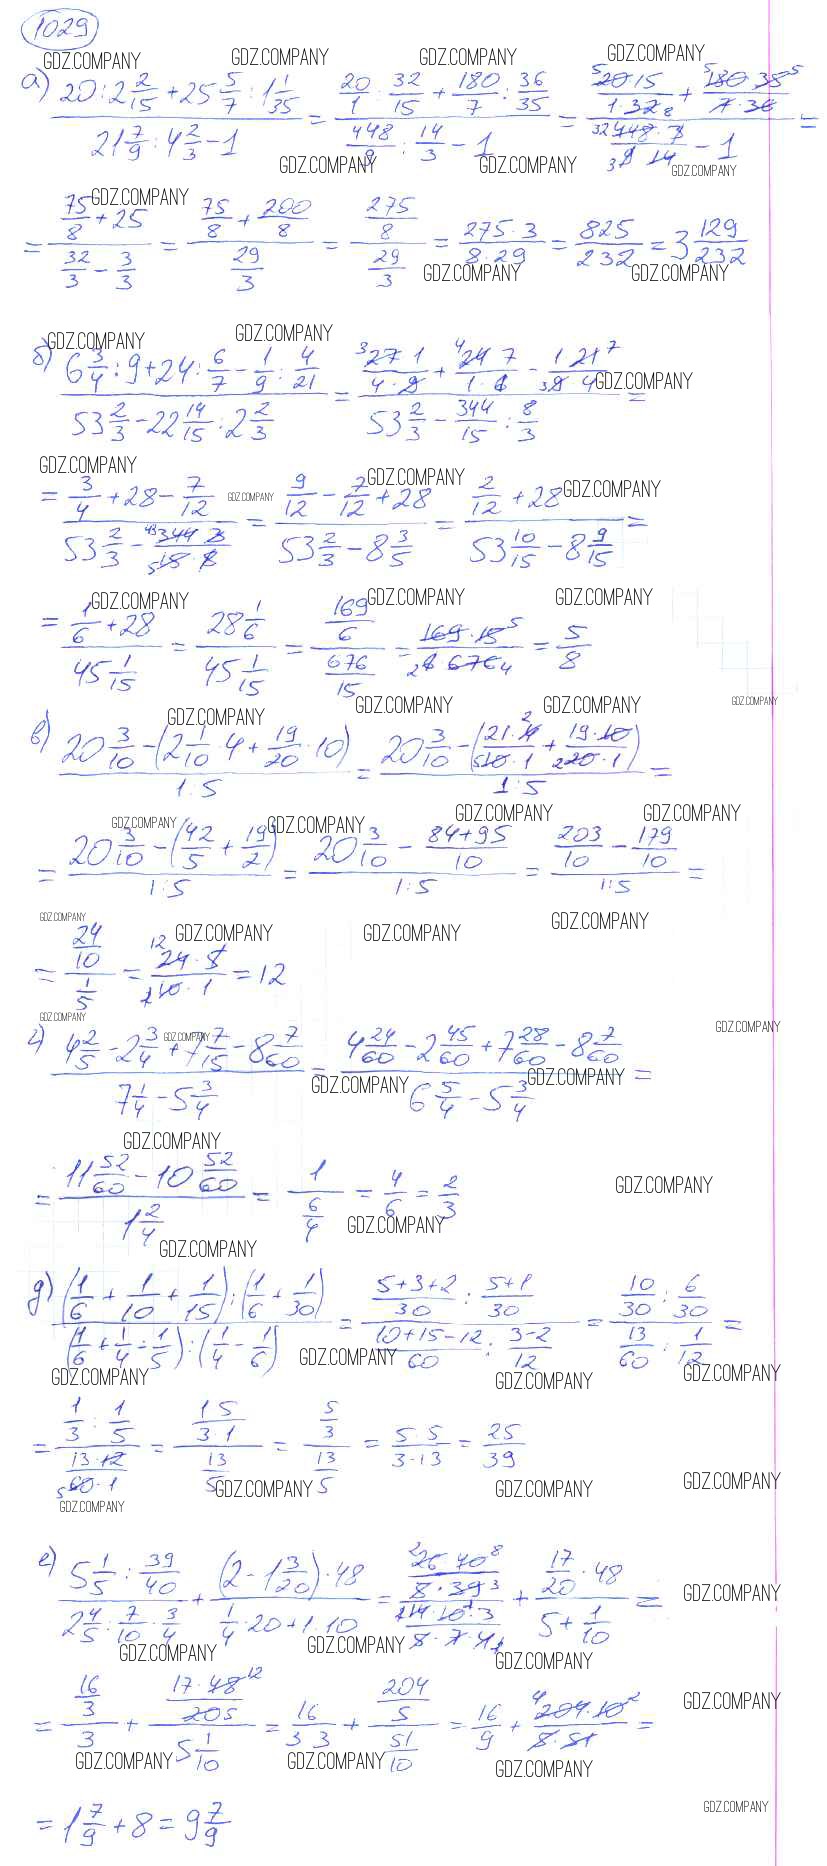 1029
GDZ.COMPANY GDZ.COMPANY GDZ.COMPANY GDZ.COMPANY
а) (20 : 2 2/15 + 25 5/7 : 1 1/35) / (21 7/9 : 4 2/3 - 1) = (20/1 : 32/15 + 180/7 : 36/35) / (448/9 : 14/3 - 1) = (20 15 / 1·32 + 180·35 / 7·36) / (448·3 / 9 14 - 1) =
GDZ.COMPANY GDZ.COMPANY GDZ.COMPANY
GDZ.COMPANY
= (75/8 + 25) / (32/3 - 3/3) = (75/8 + 200/8) / (29/3) = (275/8) / (29/3) = 275·3 / 8·29 = 825/232 = 3 129/232
GDZ.COMPANY GDZ.COMPANY
GDZ.COMPANY GDZ.COMPANY
б) (6 3/4 : 9 + 24 : 6/7 - 1/9 : 4/21) / (53 2/3 - 22 14/15 : 2 2/3) = (27 1 / 4·9 + 24 7 / 1·6 - 1 21 / 9 4) / (53 2/3 - 344/15 : 8/3) =
GDZ.COMPANY
GDZ.COMPANY GDZ.COMPANY GDZ.COMPANY GDZ.COMPANY
= (3/4 + 28 - 7/12) / (53 2/3 - 344 3 / 15·8) = (9/12 - 7/12 + 28) / (53 2/3 - 8 3/5) = (2/12 + 28) / (53 10/15 - 8 9/15) =
GDZ.COMPANY GDZ.COMPANY GDZ.COMPANY
= (1/6 + 28) / (45 1/15) = (28 1/6) / (45 1/15) = (169/6) / (676/15) = 169·15 / 6 676 = 5/8
GDZ.COMPANY GDZ.COMPANY GDZ.COMPANY GDZ.COMPANY
в) (20 3/10 - (2 1/10 · 4 + 19/20 · 10)) / (1 : 5) = (20 3/10 - (21·4 / 10·1 + 19·10 / 20·1)) / (1 : 5) =
GDZ.COMPANY GDZ.COMPANY GDZ.COMPANY GDZ.COMPANY
= (20 3/10 - (42/5 + 19/2)) / (1 : 5) = (20 3/10 - 84+95 / 10) / (1 : 5) = (203/10 - 179/10) / (1 : 5) =
GDZ.COMPANY GDZ.COMPANY GDZ.COMPANY GDZ.COMPANY
= (24/10) / (1/5) = 24·5 / 10·1 = 12
GDZ.COMPANY GDZ.COMPANY GDZ.COMPANY
г) (4 2/5 - 2 3/4 + 7 7/15 - 8 7/60) / (7 1/4 - 5 3/4) = (4 24/60 - 2 45/60 + 7 28/60 - 8 7/60) / (6 5/4 - 5 3/4) =
GDZ.COMPANY GDZ.COMPANY
GDZ.COMPANY
= (11 52/60 - 10 52/60) / (1 2/4) = 1 / (6/4) = 4/6 = 2/3
GDZ.COMPANY GDZ.COMPANY GDZ.COMPANY
д) ((1/6 + 1/10 + 1/15) : (1/6 + 1/30)) / ((1/6 + 1/4 - 1/5) : (1/4 - 1/6)) = (5+3+2 / 30 : 5+1 / 30) / (10+15-12 / 60 : 3-2 / 12) = (10/30 : 6/30) / (13/60 : 1/12) =
GDZ.COMPANY GDZ.COMPANY GDZ.COMPANY GDZ.COMPANY
= (1/3 : 1/5) / (13·12 / 60·1) = (1 5 / 3·1) / (13/5) = (5/3) / (13/5) = 5·5 / 3·13 = 25/39
GDZ.COMPANY GDZ.COMPANY GDZ.COMPANY GDZ.COMPANY
е) (5 1/5 : 39/40) / (2 4/5 : 7/10 · 3/4) + ((2 - 1 3/20) · 48) / (1/4 · 20 + 1 · 10) = (26 40 / 5·39) / (14·10·3 / 5·7·4) + (17/20 · 48) / (5 + 1/10) =
GDZ.COMPANY GDZ.COMPANY GDZ.COMPANY GDZ.COMPANY
= (16/3) / 3 + (17·48 / 20 5) / (5 1/10) = 16 / 3 3 + (204/5) / (51/10) = 16/9 + 204·10 / 5·51 =
GDZ.COMPANY GDZ.COMPANY GDZ.COMPANY GDZ.COMPANY
= 1 7/9 + 8 = 9 7/9
GDZ.COMPANY